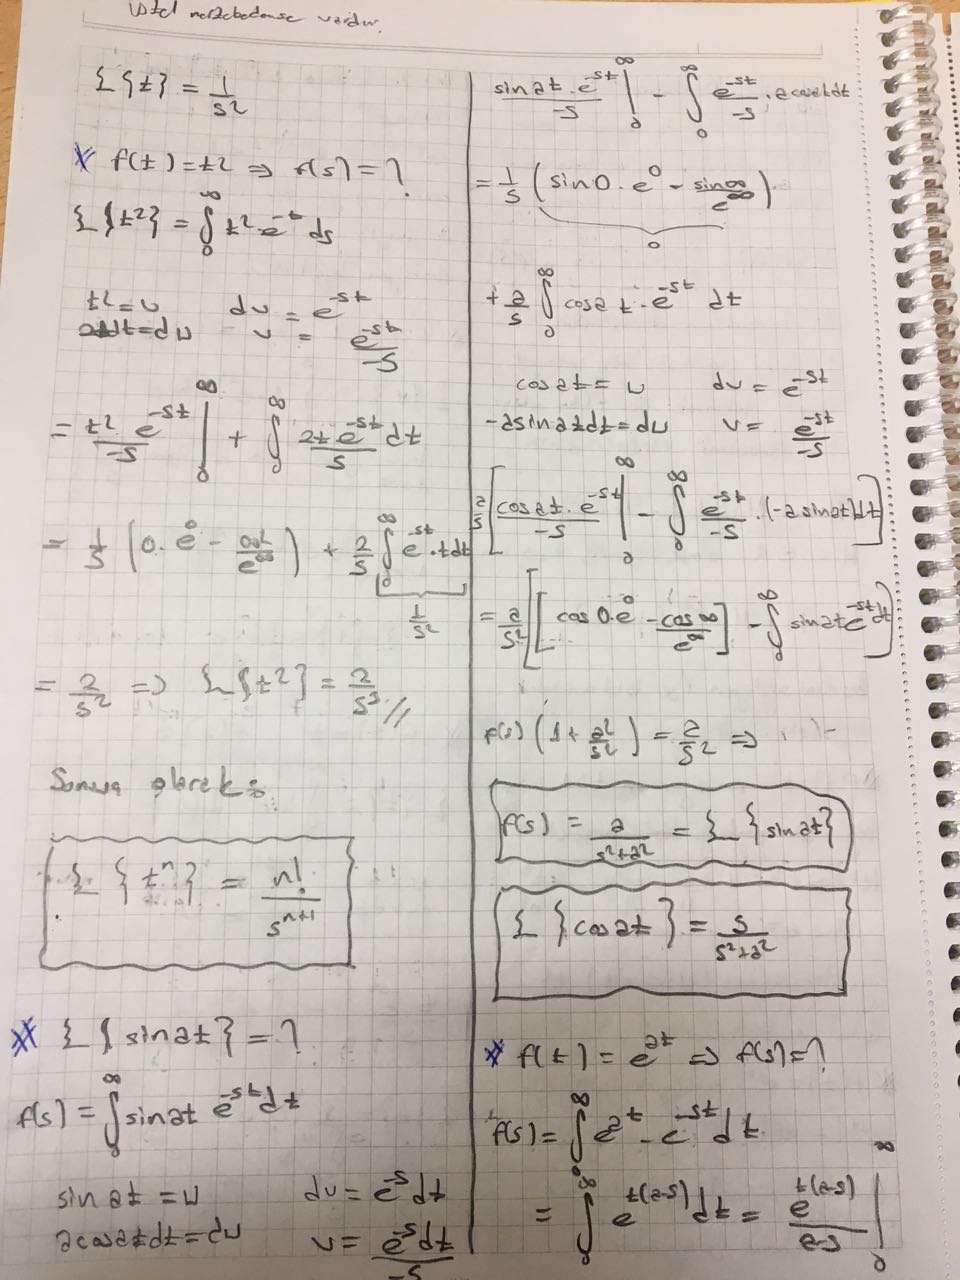 üstel mertebedense vardır.
£{t} = 1/s²
* f(t) = t2 ⇒ f(s) = ?
£{t²} = ∫₀^∞ t² e^-t ds
t² = u dv = e^-st
dt = du v = e^-st/-s
= t² e^-st/-s |₀^∞ + ∫₀^∞ 2t.e^-st/s dt
= 1/s (0.e^0 - ∞²/e^∞) + 2/s ∫₀^∞ e^-st.tdt
1/s²
= 2/s² ⇒ £{t²} = 2/s³ //
Sonuç olarak:
£{tⁿ} = n!/s^n+1
** £{sinat} = ?
f(s) = ∫₀^∞ sinat e^-st dt
sinat = u dv = e^-s dt
acosatdt = du v = e^-s dt/-s
sinat.e^-st/-s |₀^∞ - ∫₀^∞ e^-st/-s . acosatdt
= 1/s (sin0.e^0 - sin∞/e^∞)
0
+ a/s ∫₀^∞ cosat.e^-st dt
cosat = u dv = e^-st
-asinatdt = du v = e^-st/-s
a/s [cosat.e^-st/-s |₀^∞ - ∫₀^∞ e^-st/-s .(-asinat)dt]
= a/s² [[cos0.e^0 - cos∞/e^∞] - ∫₀^∞ sinate^-st dt]
f(s) (1 + a²/s²) = a/s² ⇒
f(s) = a/s²+a² = £{sinat}
£{cosat} = s/s²+a²
* f(t) = e^at ⇒ f(s) = ?
f(s) = ∫₀^∞ e^at - e^-st dt
= ∫₀^∞ e^t(a-s) dt = e^t(a-s)/a-s |₀^∞